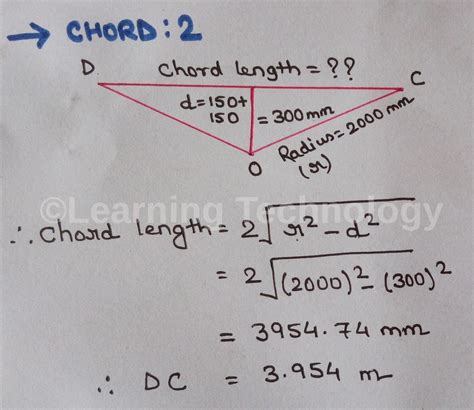 → CHORD: 2
D Chord length = ?? C
d = 150+
150 = 300mm
Radius = 2000 mm
(r)
O
©Learning Technology
∴ Chord length = 2√r² - d²
= 2√(2000)² - (300)²
= 3954.74 mm
∴ DC = 3.954 m